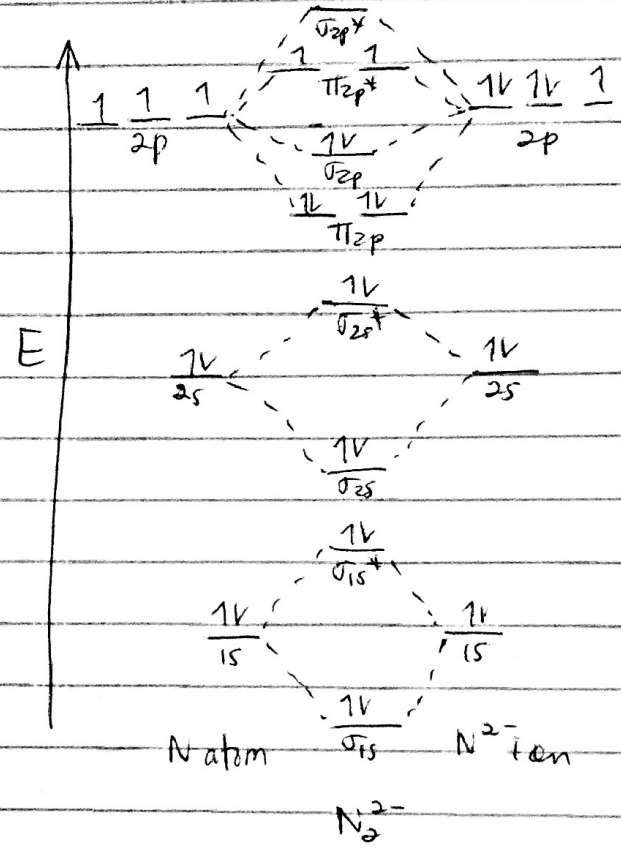 σ2p*
1 1
π2p*
1 1 1
2p
1V 1V 1
2p
1V
σ2p
1V 1V
π2p
1V
σ2s*
E
1V
2s
1V
2s
1V
σ2s
1V
σ1s*
1V
1s
1V
1s
1V
σ1s
N atom
N²⁻ ion
N₂²⁻